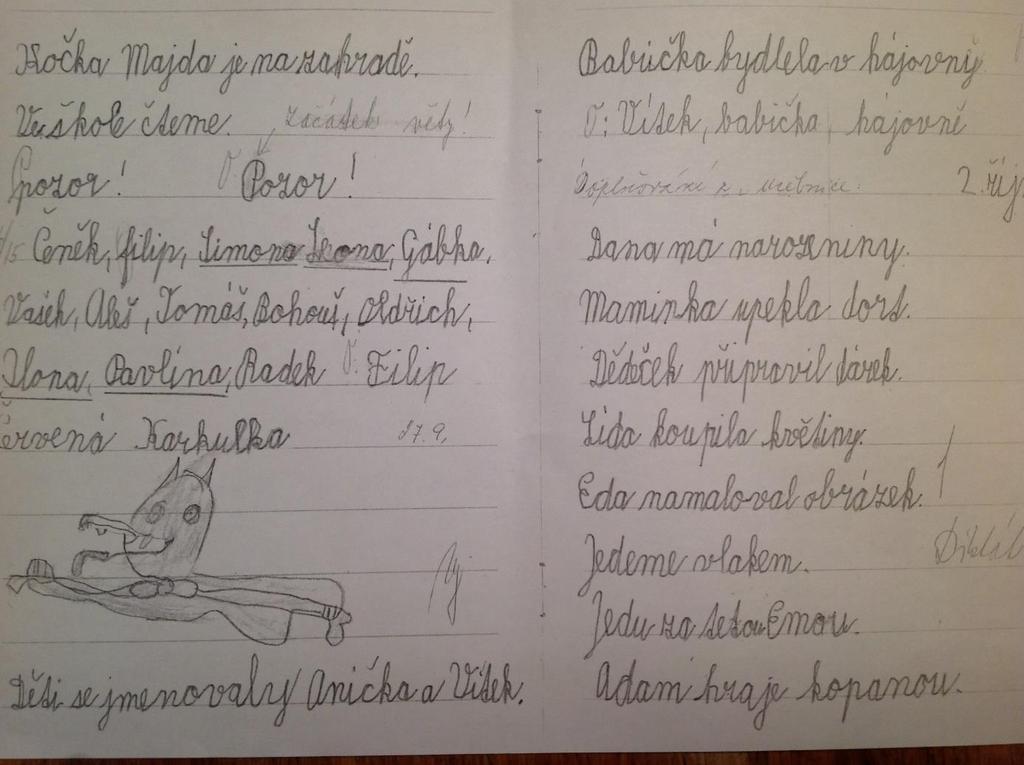 Kočka Majda je na zahradě.
Ve škole čteme. začátek věty!
pozor! O Pozor!
Čeněk, filip, Simona Leona, Gábka,
Vašek, Aleš, Tomáš, Bohouš, Oldřich,
Ilona, Pavlína, Radek O. Filip
Červená Karkulka 27.9.
Děti se jmenovaly Anička a Vítek.
Babička bydlela v hájovny
O: Vítek, babička, hájovně
Doplňování z učebnice: 2. říj
Dana má narozeniny.
Maminka upekla dort.
Dědeček připravil dárek.
Lída koupila květiny.
Eda namaloval obrázek. 1
Jedeme vlakem. Diktát
Jedu za tetou Emou.
Adam hraje kopanou.